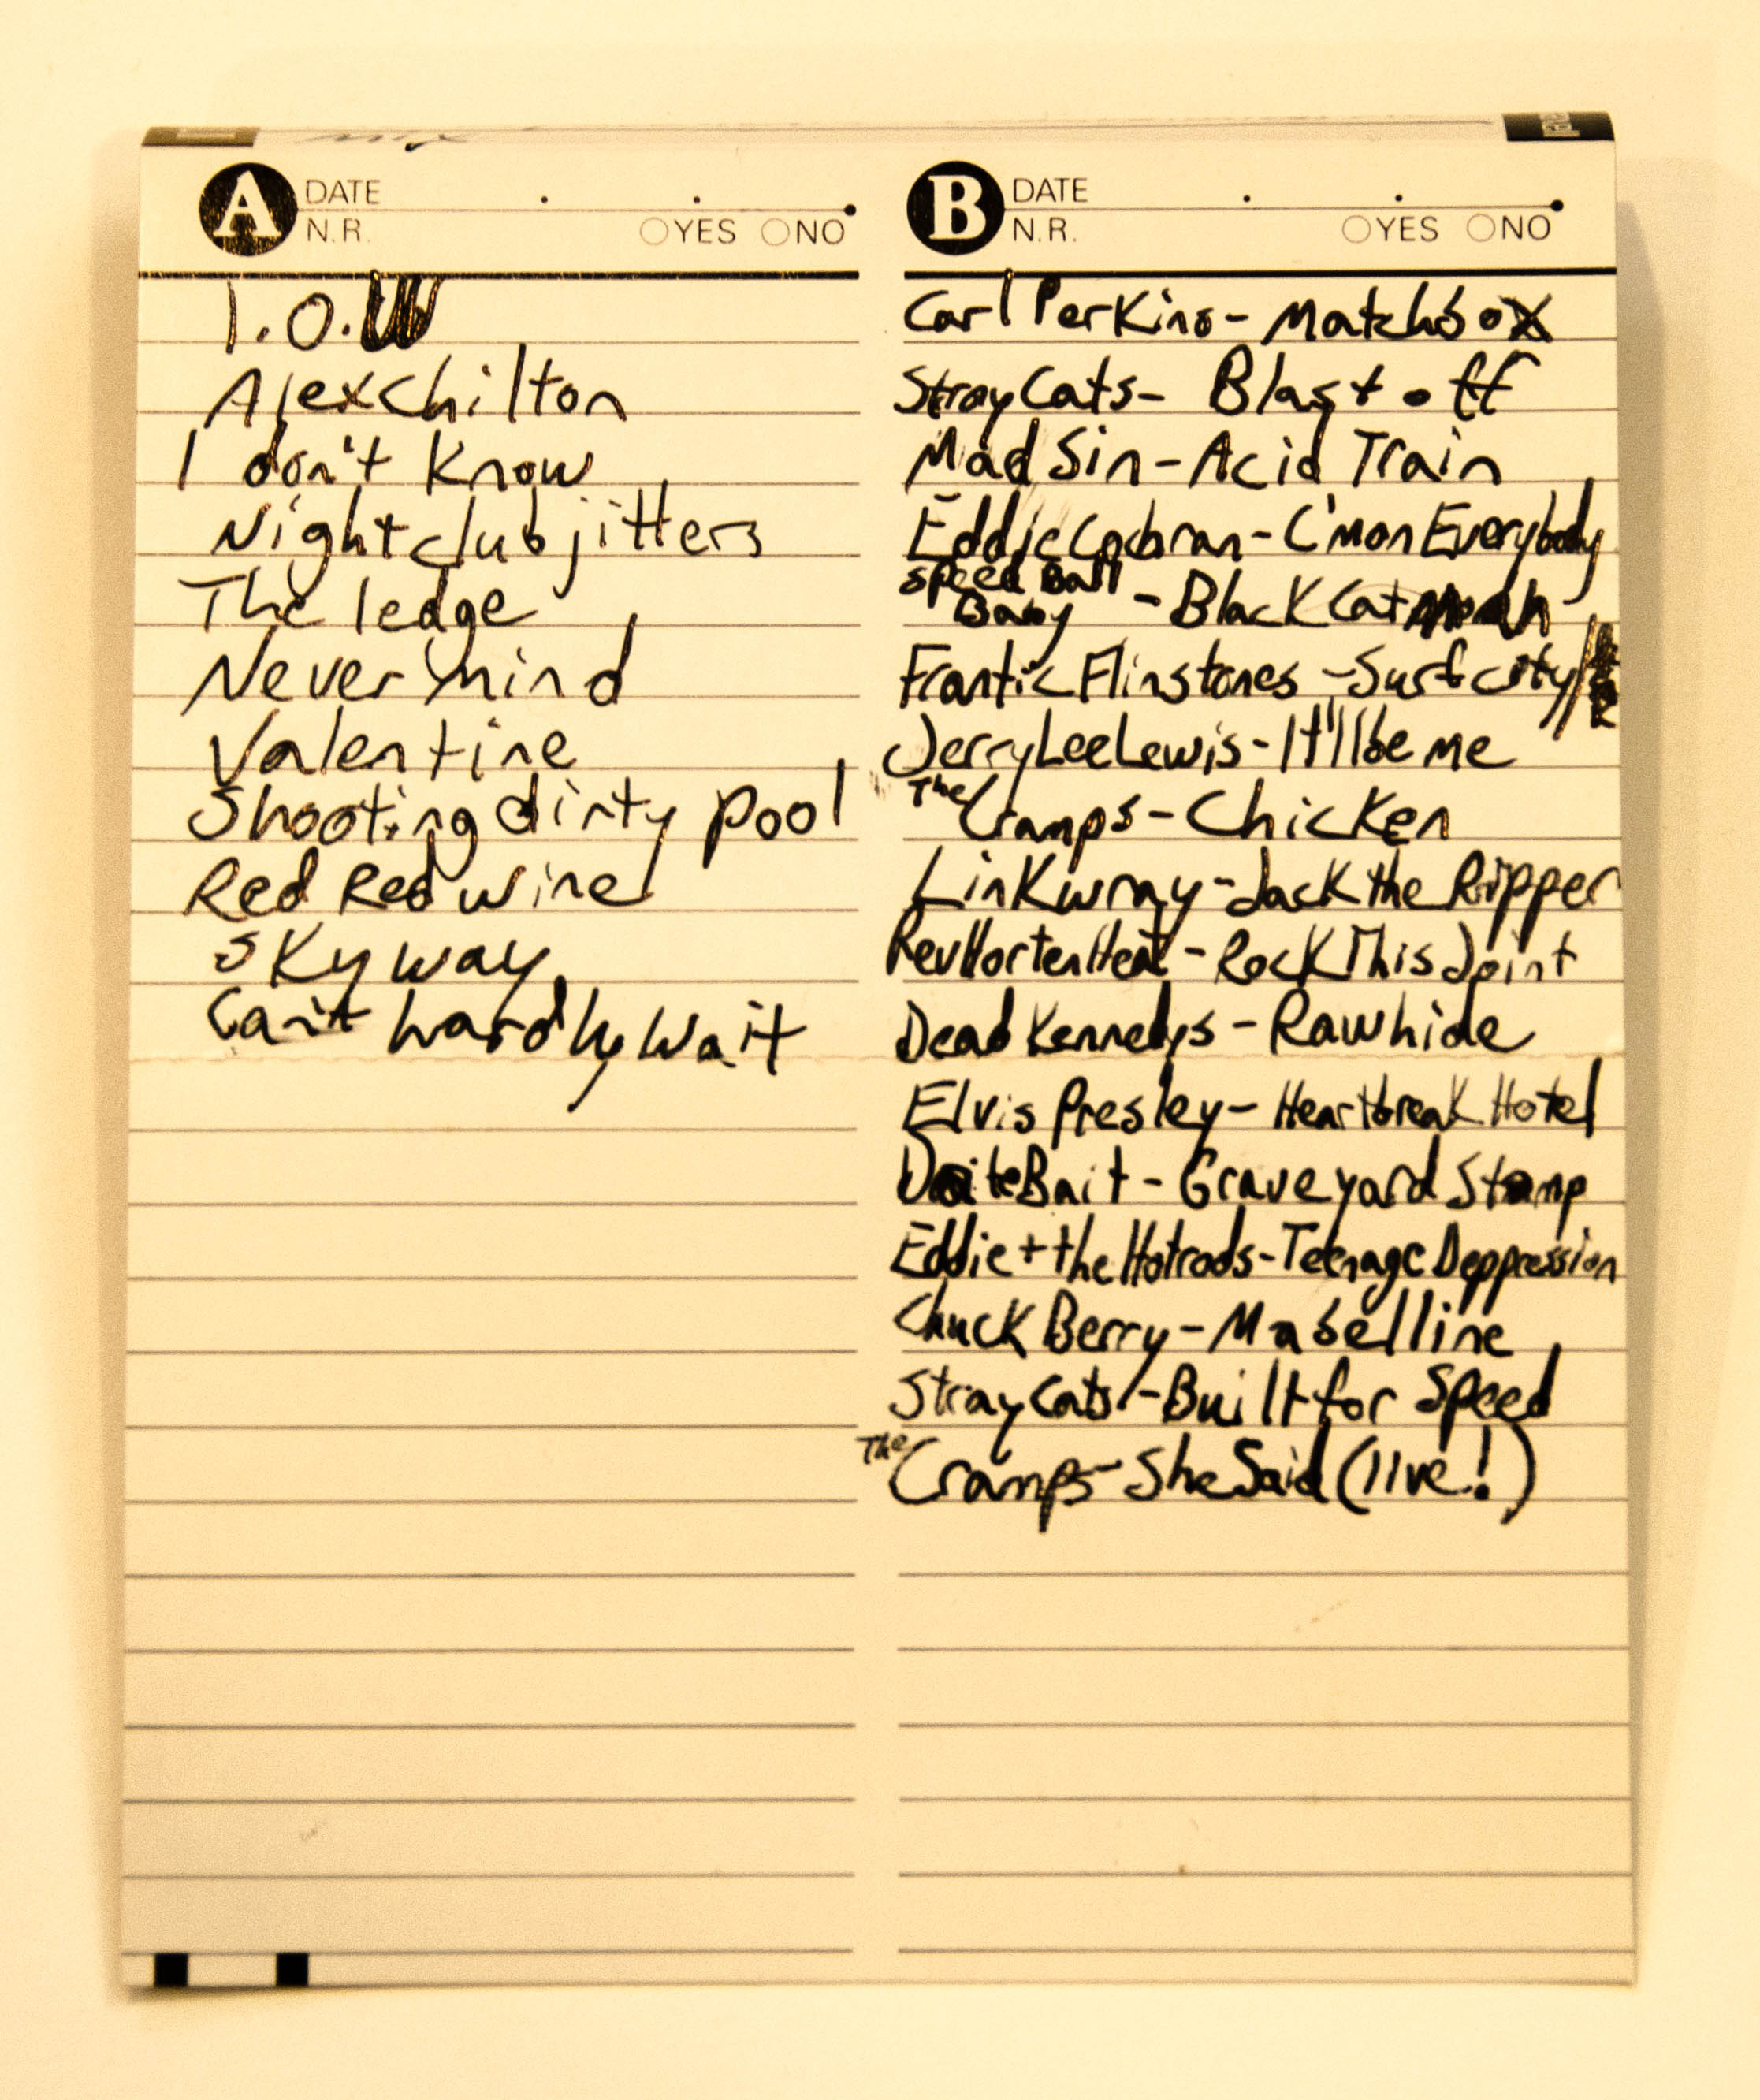 mix
A
DATE
N.R. YES NO
I.O.U
Alex Chilton
I don't Know
Nightclub jitters
The ledge
Never mind
Valentine
Shooting dirty pool
Red Red wine
Skyway
Can't hardly wait
B
DATE
N.R. YES NO
Carl Perkins - Matchbox
Stray Cats - Blast off
Mad Sin - Acid Train
Eddie Cochran - C'mon Everybody
Speed Ball
Baby - Black Cat
Frantic Flinstones - Surf city
Jerry Lee Lewis - It'll be me
The Cramps - Chicken
Link wray - Jack the Ripper
Rev Horten Heat - Rock This Joint
Dead Kennedys - Rawhide
Elvis Presley - Heartbreak Hotel
Bait - Graveyard Stomp
Eddie + the Hotrods - Teenage Deppression
Chuck Berry - Mabelline
Stray Cats - Built for Speed
The Cramps - She Said (live!)